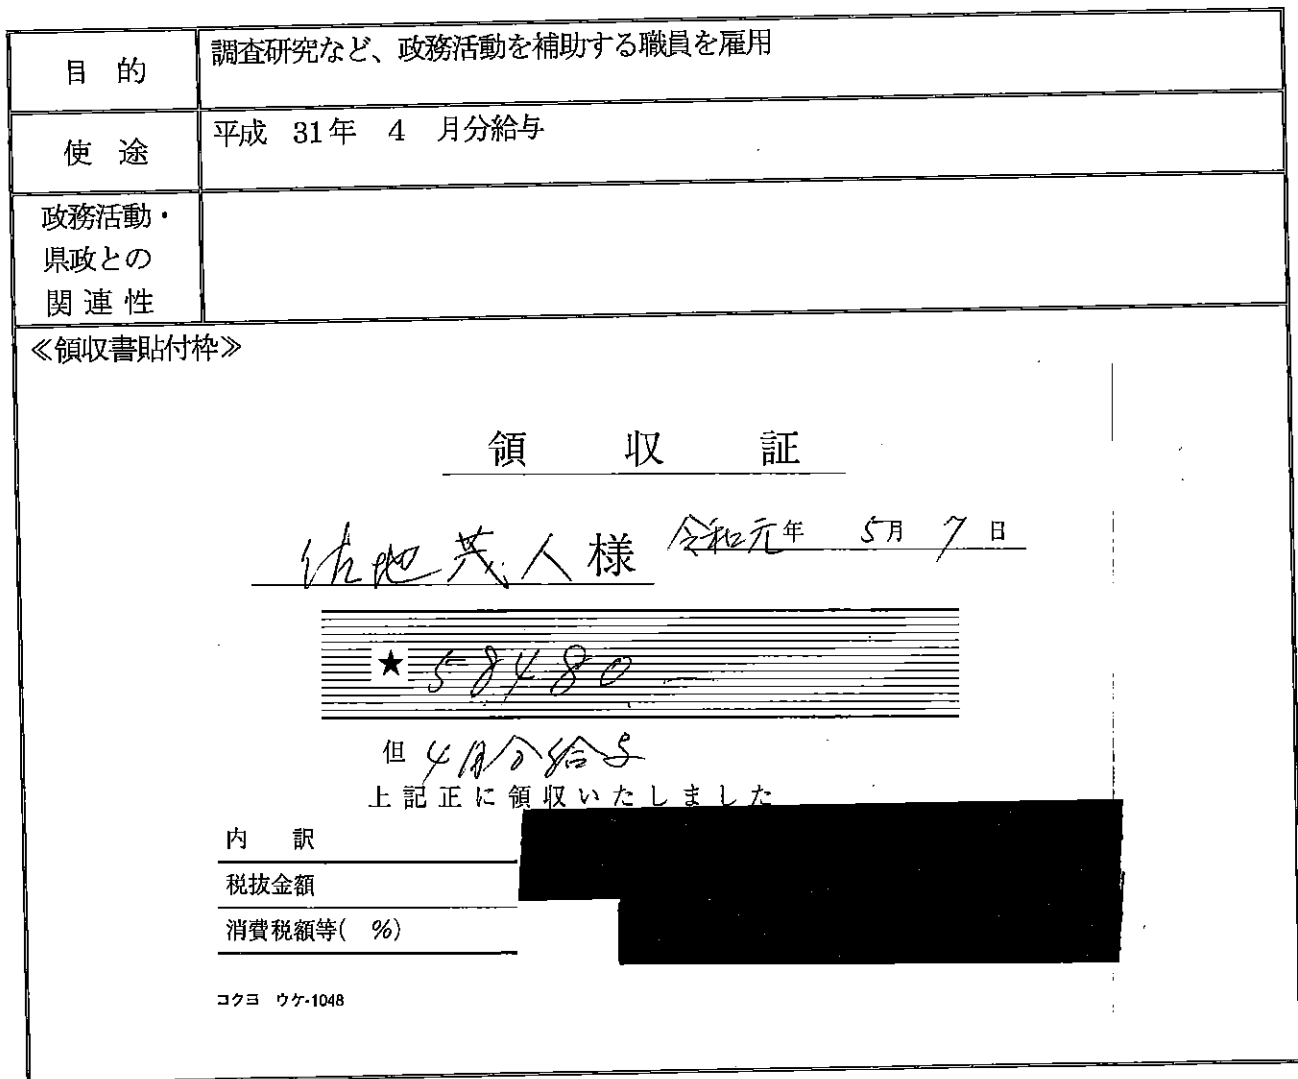 目 的
調査研究など、政務活動を補助する職員を雇用
使 途
平成 31年 4 月分給与
政務活動・
県政との
関連性
≪領収書貼付枠≫
領 収 証
佐地茂人様 令和元年 5月 7日
★ 58480
但 4月分給与
上記正に領収いたしました
内 訳
税抜金額
消費税額等( %)
コクヨ ウケ-1048